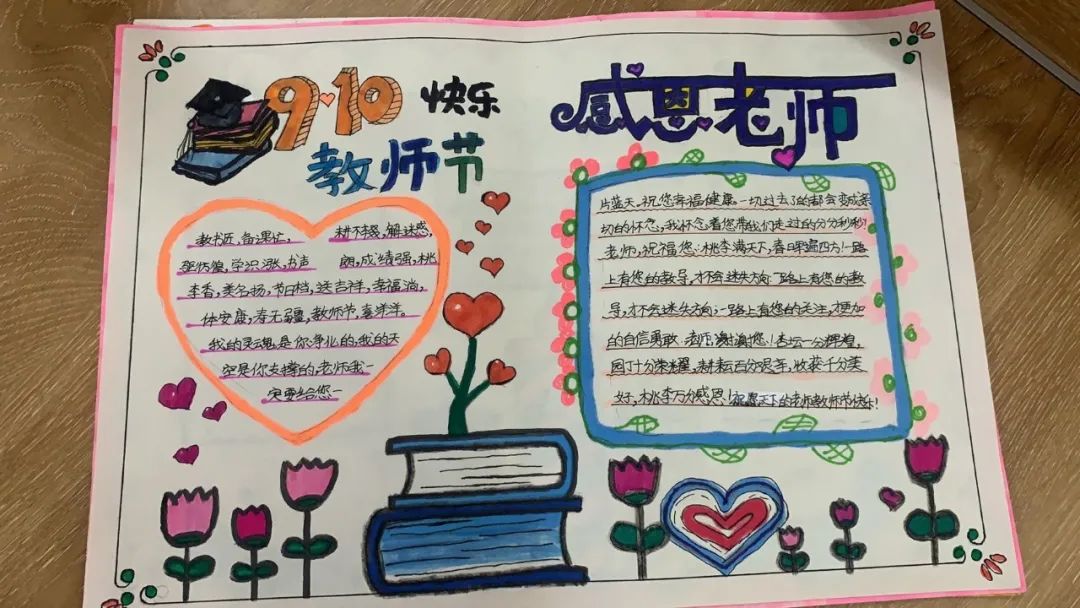 9·10 快乐
教师节
感恩老师
教书匠,备课忙, 耕不辍,解迷惑,
学识涨,书声 朗,成绩强,桃
李香,美名扬,节日档,送吉祥,幸福淌,
体安康,寿无疆,教师节,喜洋洋。
我的灵魂是你净化的,我的天
空是你支撑的,老师我一
定要给您一
片蓝天,祝您幸福健康。一切过去了的都会变成亲
切的怀念,我怀念着您带我们走过的分分秒秒!
老师,祝福您:桃李满天下,春晖遍四方!一路
上有您的教导,才不会迷失方向;一路上有您的教
导,才不会迷失方向;一路上有您的关注,才更加
的自信勇敢 老师,谢谢您!杏坛一分辉煌,
园丁十分荣耀,耕耘百分艰辛,收获千分美
好,桃李万分感恩!祝愿天下的老师教师节快乐!